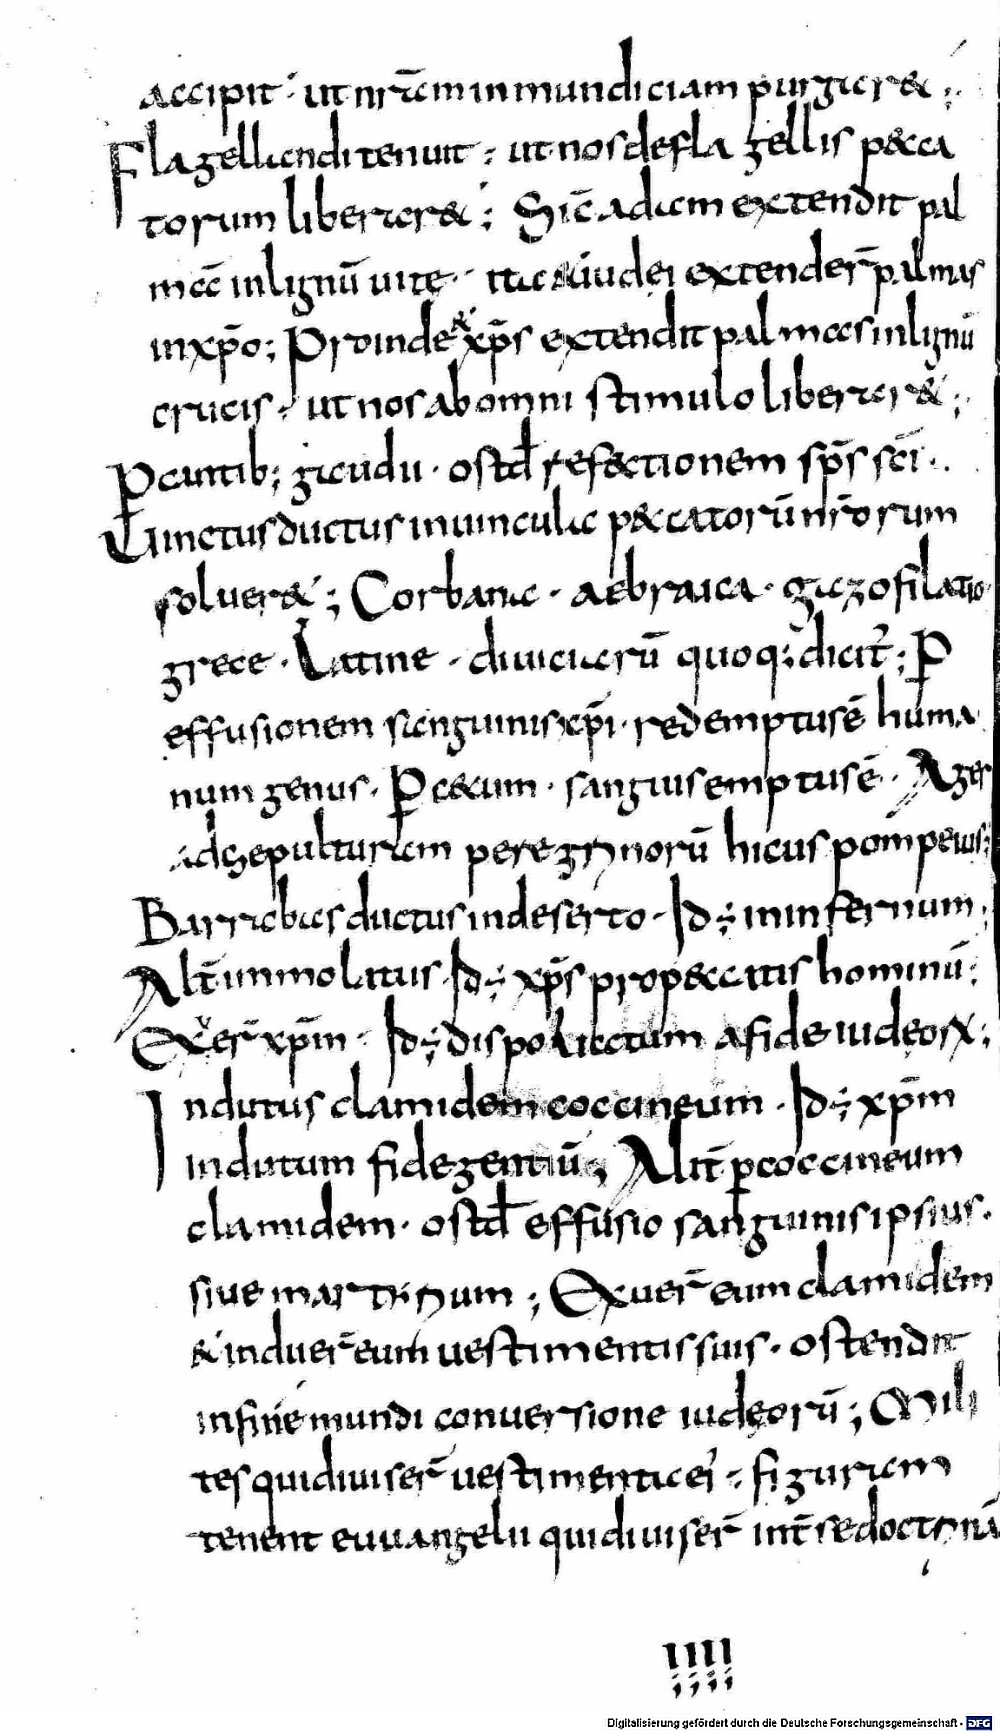 accipit · ut nr̄am inmundiciam purgar&;
Flagellandi tenuit; ut nos de flagellis p&ca
torum liberar&; Sic̄ adam extendit pal
mā inlignū uite · ita &iudei extender̄ palmas
inxp̄o; Proinde & xp̄s extendit palmas inlignū
crucis · ut nos ab omni stimulo liberar&;
P cuntib; gaudii · ostd̄ refectionem sp̄s sc̄i ·
Uinctus ductus inuincula p&catorū nr̄orum
soluer&; Corbana · aebraica · gazofilatio
grece · Latine · diuiciarū quoq; dicit̄; P
effusionem sanguinis xp̄i · redemptus ē huma
num genus · P &cum · sanguis emptus ē · Ager
ad sepulturam peregrinorū hicus pompeius;
Barrabas ductus indeserto · Id ÷ ininfernum;
Alt̄ immolatus · Id ÷ xp̄s prop&catis hominū;
Exuer̄ xp̄m · Id ÷ dispoliatum afide iudeorꝝ;
Indutus clamidem coccineum · Id ÷ xp̄m
indutum fide gentiū; Alit̄ p coccineum
clamidem · ostd̄ effusio sanguinis ipsius ·
siue martirum; Exuer̄ eum clamidem
& induer̄ eum uestimentis suis · ostendit
infine mundi conuersione iudeorū; Mili
tes quidiuiser̄ uestimenta ei · figuram
tenent euuangelii quidiuiser̄ int̄ se doctrinā
Digitalisierung gefördert durch die Deutsche Forschungsgemeinschaft - DFG